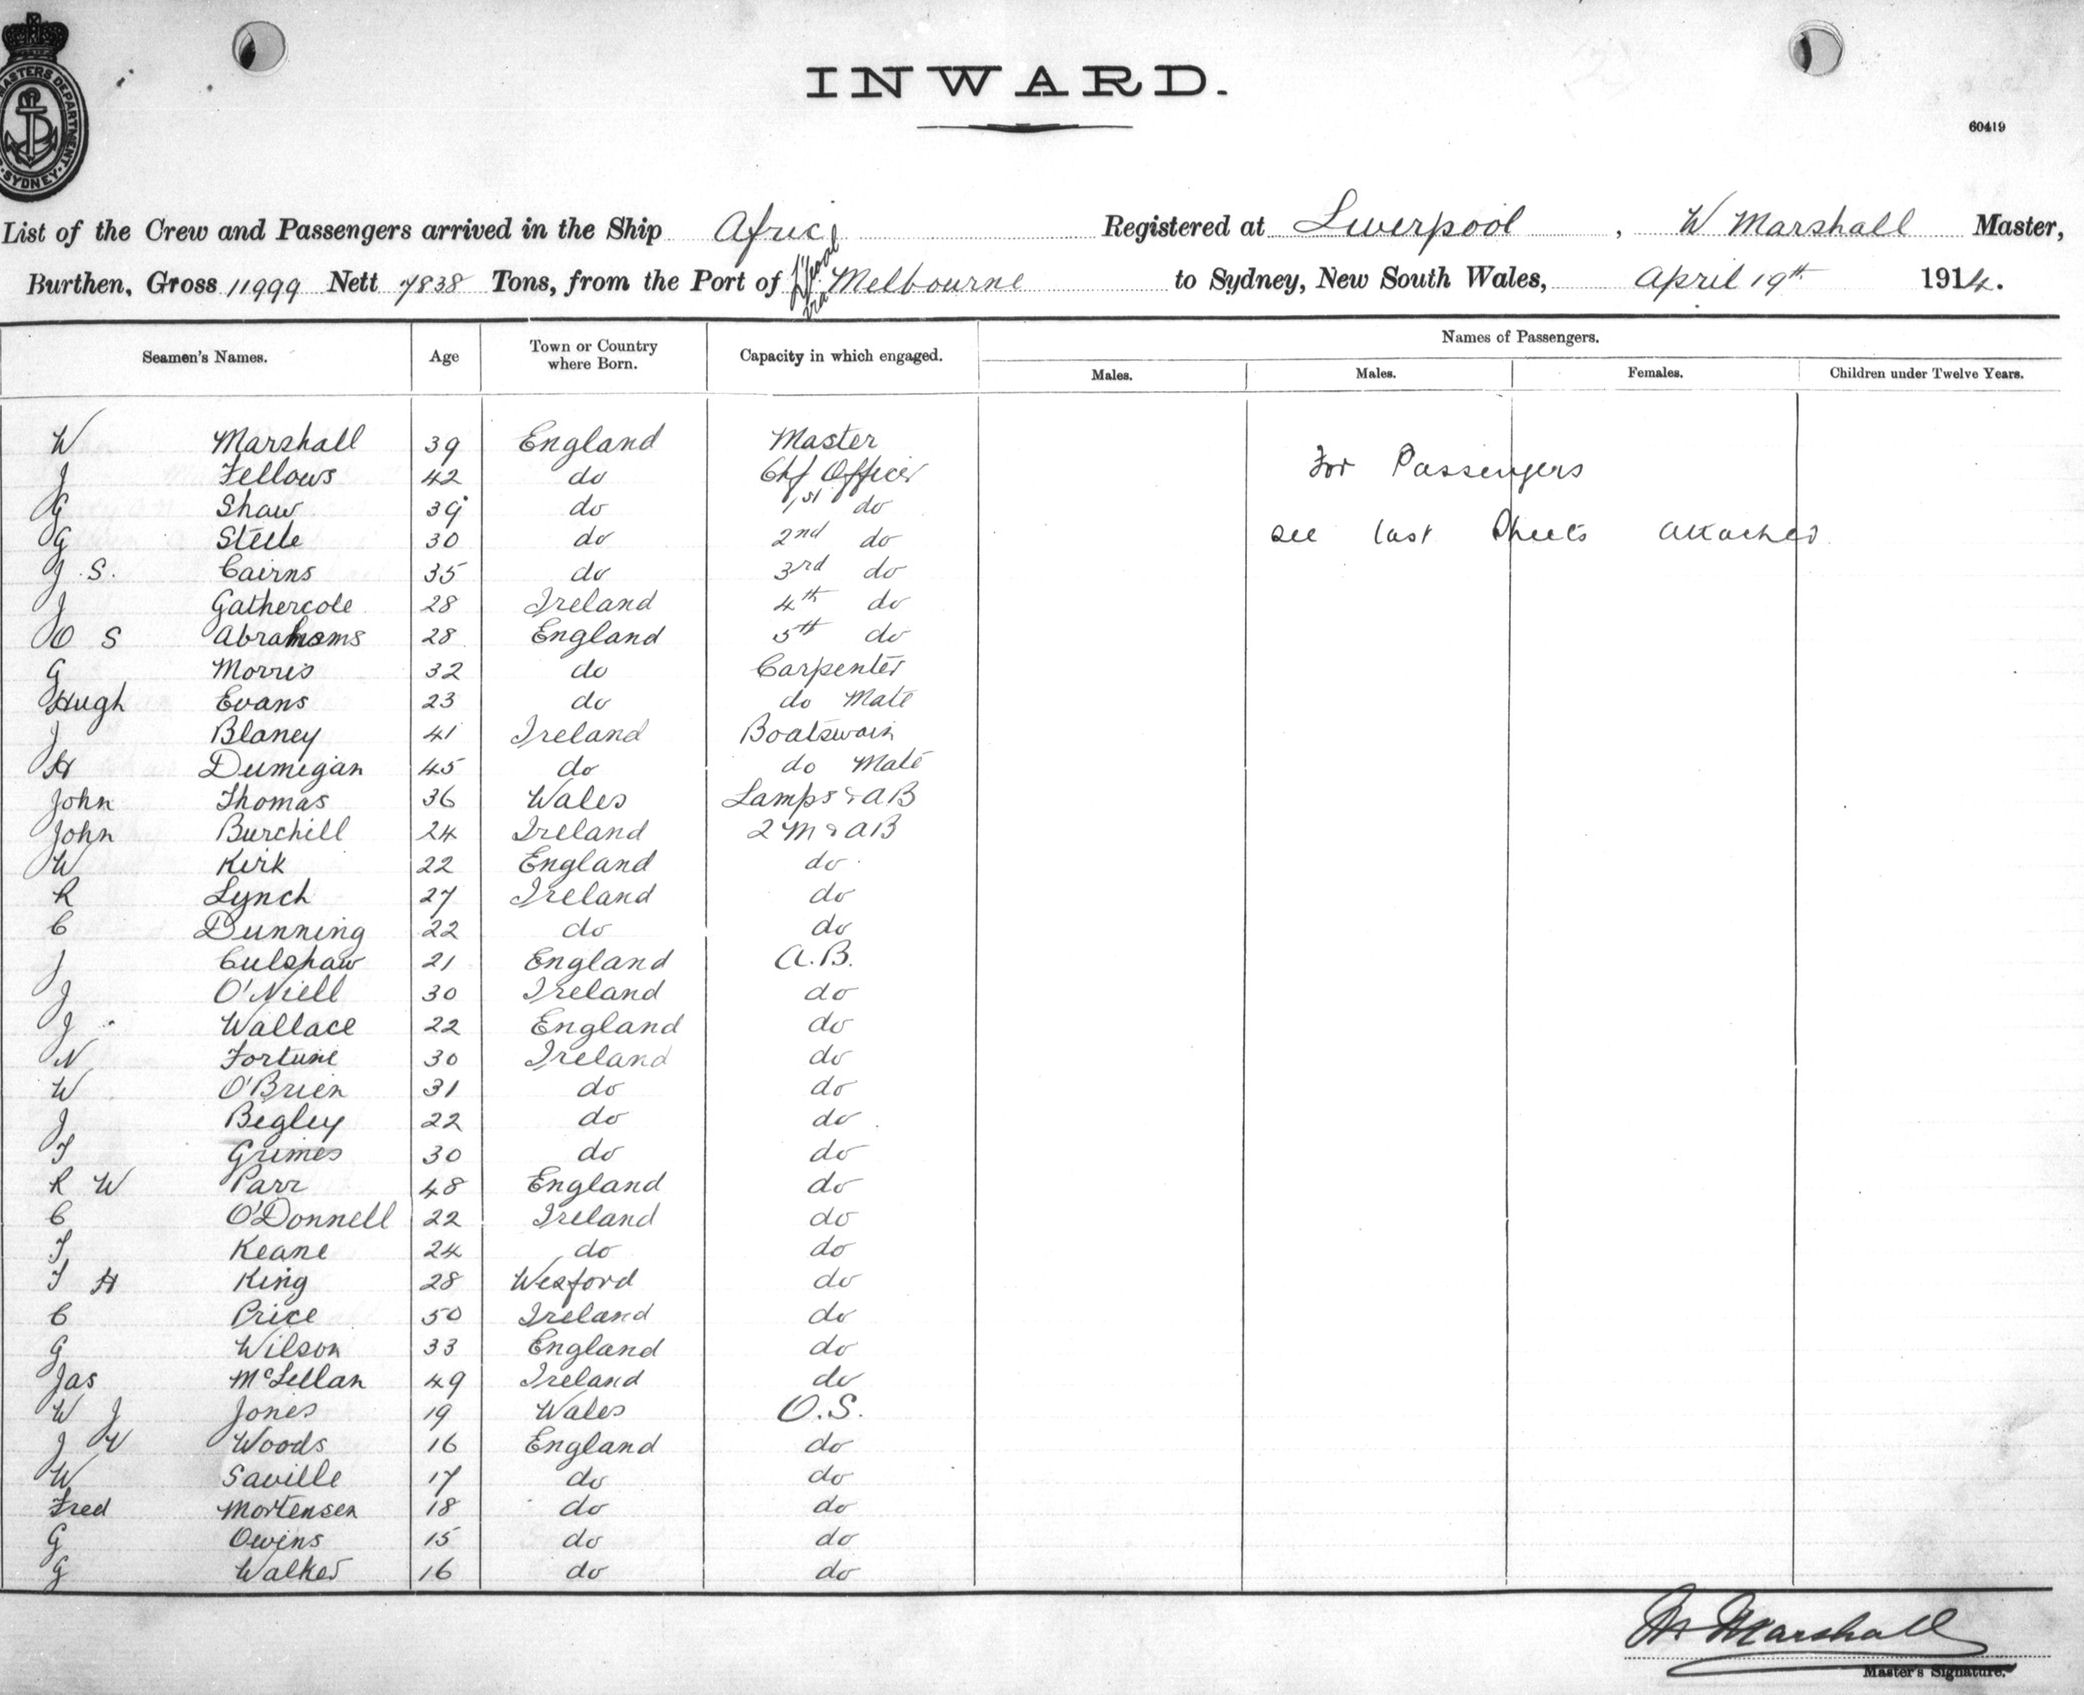 MASTERS DEPARTMENT
SYDNEY
INWARD.
60419
List of the Crew and Passengers arrived in the Ship Afric Registered at Liverpool, W Marshall Master,
L'pool
Burthen, Gross 11999 Nett 7838 Tons, from the Port of via Melbourne to Sydney, New South Wales, April 19th 1914.
Seamen's Names. Age Town or Country where Born. Capacity in which engaged. Names of Passengers.
Males. Males. Females. Children under Twelve Years.
W Marshall 39 England Master
J Fellows 42 do Chf Officer For Passengers
G Shaw 39 do 1st do
G Steele 30 do 2nd do see last Sheets attached
J. S. Cairns 35 do 3rd do
J Gathercole 28 Ireland 4th do
O S Abrahams 28 England 5th do
G Morris 32 do Carpenter
Hugh Evans 23 do do Mate
J Blaney 41 Ireland Boatswain
H Dumigan 45 do do Mate
John Thomas 36 Wales Lamps & AB
John Burchill 24 Ireland 2 M & AB
W Kirk 22 England do
R Lynch 27 Ireland do
C Dunning 22 do do
J Culshaw 21 England A.B.
J O'Niell 30 Ireland do
J Wallace 22 England do
N Fortune 30 Ireland do
W O'Brien 31 do do
J Begley 22 do do
T Grimes 30 do do
R W Parr 48 England do
C O'Donnell 22 Ireland do
T Keane 24 do do
T H King 28 Wexford do
C Price 50 Ireland do
G Wilson 33 England do
Jas McLellan 49 Ireland do
W J Jones 19 Wales O.S.
J W Woods 16 England do
W Saville 17 do do
Fred Mortensen 18 do do
G Owens 15 do do
G Walker 16 do do
W Marshall
Master's Signature.